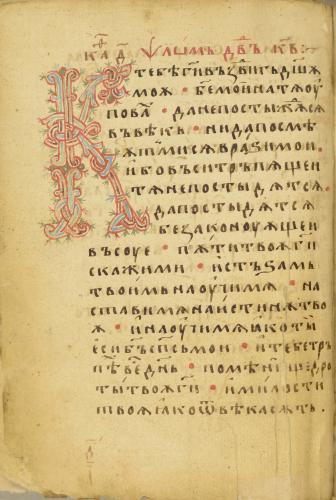 к҃а д҃ ѱлѡмъ дв҃ъ к҃в:
Ктебѣ г҃и въꙁвигъ дш҃ѫ
моѫ • б҃е мои на тѧ оу
повах • да не постыждѫсѧ
въ вѣкъ • ни да посмѣ
ѫт ми сѧ враꙁи мои •
ибо въси тръпѧщеи
тѧ не постыдѧтсѧ.
да постыдѧтсѧ
беꙁаконоуѫщеи
въсоуе • пѫти твоѧ г҃и
скажи ми • и стъꙁамъ
твоимь наоучи мѧ • на
стави мѧ на истинѫ тво
ѫ • и наоучи мѧ ꙗко ты
еси б҃ъ сп҃съ мои • и тебе трь
пѣ въ дн҃ь • помѣни щедро
ты твоѧ г҃и • и милости
твоѧ ꙗко ѿ вѣка сѫть.